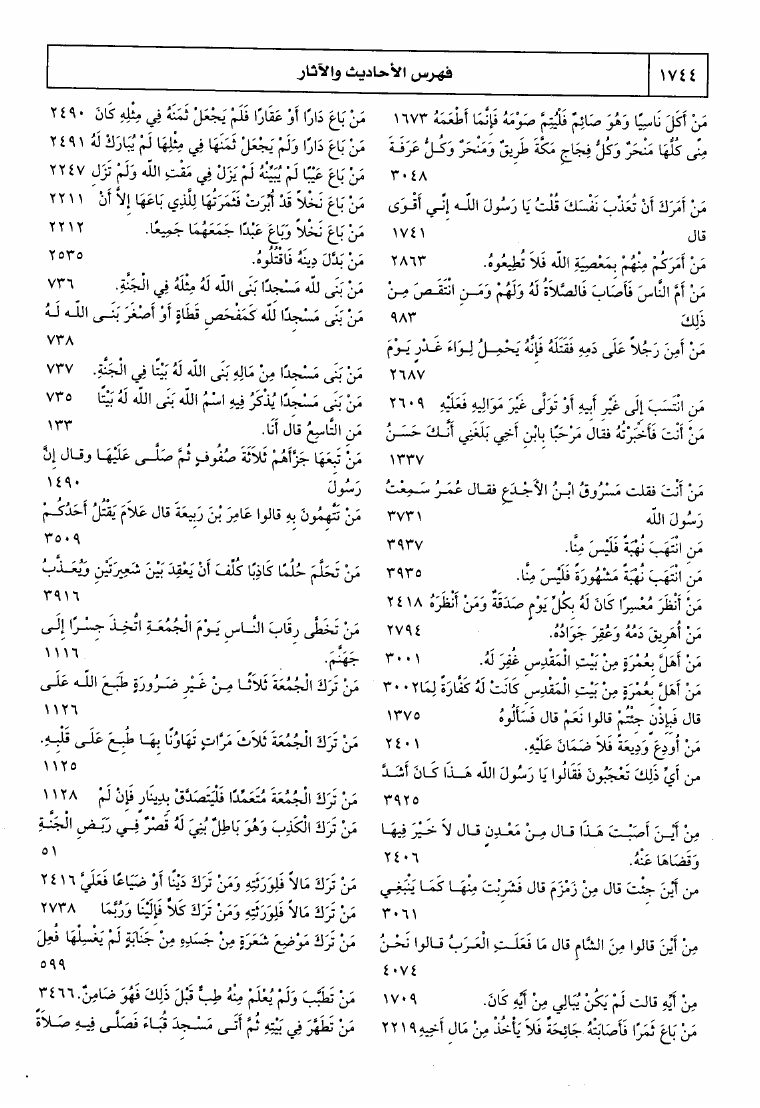 ١٧٤٤
فهرس الأحاديث والآثار
مَنْ أَكَلَ نَاسِيًا وَهُوَ صَائِمٌ فَلْيُتِمَّ صَوْمَهُ فَإِنَّمَا أَطْعَمَهُ ١٦٧٣
مِنًى كُلُّهَا مَنْحَرٌ وَكُلُّ فِجَاجِ مَكَّةَ طَرِيقٌ وَمَنْحَرٌ وَكُلُّ عَرَفَةَ
٣٠٤٨
مَنْ أَمَرَكَ أَنْ تُعَذِّبَ نَفْسَكَ قُلْتُ يَا رَسُولَ اللَّه إِنِّي أَقْوَى
قال ١٧٤١
مَنْ أَمَرَكُمْ مِنْهُمْ بِمَعْصِيَةِ اللَّه فَلاَ تُطِيعُوهُ. ٢٨٦٣
مَنْ أَمَّ النَّاسَ فَأَصَابَ فَالصَّلاَةُ لَهُ وَلَهُمْ وَمَنِ انْتَقَصَ مِنْ
ذَلِكَ ٩٨٣
مَنْ أَمِنَ رَجُلاً عَلَى دَمِهِ فَقَتَلَهُ فَإِنَّهُ يَحْمِلُ لِوَاءَ غَدْرٍ يَوْمَ
٢٦٨٧
مَنِ انْتَسَبَ إِلَى غَيْرِ أَبِيهِ أَوْ تَوَلَّى غَيْرَ مَوَالِيهِ فَعَلَيْهِ ٢٦٠٩
مَنْ أَنْتَ فَأَخْبَرْتُهُ فقال مَرْحَبًا بِابْنِ أَخِي بَلَغَنِي أَنَّكَ حَسَنُ
١٣٣٧
مَنْ أَنْتَ فقلت مَسْرُوقُ ابْنُ الأَجْدَعِ فقال عُمَرُ سَمِعْتُ
رَسُولَ اللَّه ٣٧٣١
مَنِ انْتَهَبَ نُهْبَةً فَلَيْسَ مِنَّا. ٣٩٣٧
مَنِ انْتَهَبَ نُهْبَةً مَشْهُورَةً فَلَيْسَ مِنَّا. ٣٩٣٥
مَنْ أَنْظَرَ مُعْسِرًا كَانَ لَهُ بِكُلِّ يَوْمٍ صَدَقَةٌ وَمَنْ أَنْظَرَهُ ٢٤١٨
مَنْ أُهَرِيقَ دَمُهُ وَعُقِرَ جَوَادُهُ. ٢٧٩٤
مَنْ أَهَلَّ بِعُمْرَةٍ مِنْ بَيْتِ الْمَقْدِسِ غُفِرَ لَهُ. ٣٠٠١
مَنْ أَهَلَّ بِعُمْرَةٍ مِنْ بَيْتِ الْمَقْدِسِ كَانَتْ لَهُ كَفَّارَةً لِمَا ٣٠٠٢
قال فَبِإِذْنٍ جِئْتُمْ قالوا نَعَمْ قال فَسَأَلُوهُ ١٣٧٥
مَنْ أُودِعَ وَدِيعَةً فَلاَ ضَمَانَ عَلَيْهِ. ٢٤٠١
من أَيِّ ذَلِكَ تَعْجَبُونَ فَقَالُوا يَا رَسُولَ اللَّه هَذَا كَانَ أَشَدَّ
٣٩٢٥
مِنْ أَيْنَ أَصَبْتَ هَذَا قال مِنْ مَعْدِنٍ قال لاَ خَيْرَ فِيهَا
وَقَضَاهَا عَنْهُ. ٢٤٠٦
من أَيْنَ جِئْتَ قال مِنْ زَمْزَمَ قال فَشَرِبْتَ مِنْهَا كَمَا يَنْبَغِي
٣٠٦١
مِنْ أَيْنَ قالوا مِنَ الشَّامِ قال مَا فَعَلَتِ الْعَرَبُ قالوا نَحْنُ
٤٠٧٤
مِنْ أَيِّهِ قالت لَمْ يَكُنْ يُبَالِي مِنْ أَيِّهِ كَانَ. ١٧٠٩
مَنْ بَاعَ ثَمَرًا فَأَصَابَتْهُ جَائِحَةٌ فَلاَ يَأْخُذْ مِنْ مَالِ أَخِيهِ ٢٢١٩
مَنْ بَاعَ دَارًا أَوْ عَقَارًا فَلَمْ يَجْعَلْ ثَمَنَهُ فِي مِثْلِهِ كَانَ ٢٤٩٠
مَنْ بَاعَ دَارًا وَلَمْ يَجْعَلْ ثَمَنَهَا فِي مِثْلِهَا لَمْ يُبَارَكْ لَهُ ٢٤٩١
مَنْ بَاعَ عَيْبًا لَمْ يُبَيِّنْهُ لَمْ يَزَلْ فِي مَقْتِ اللَّه وَلَمْ تَزَلِ ٢٢٤٧
مَنْ بَاعَ نَخْلاً قَدْ أُبِّرَتْ فَثَمَرَتُهَا لِلَّذِي بَاعَهَا إِلاَّ أَنْ ٢٢١١
مَنْ بَاعَ نَخْلاً وَبَاعَ عَبْدًا جَمَعَهُمَا جَمِيعًا. ٢٢١٢
مَنْ بَدَّلَ دِينَهُ فَاقْتُلُوهُ. ٢٥٣٥
مَنْ بَنَى للّه مَسْجِدًا بَنَى اللَّه لَهُ مِثْلَهُ فِي الْجَنَّةِ. ٧٣٦
مَنْ بَنَى مَسْجِدًا للّه كَمَفْحَصِ قَطَاةٍ أَوْ أَصْغَرَ بَنَى اللَّه لَهُ
٧٣٨
مَنْ بَنَى مَسْجِدًا مِنْ مَالِهِ بَنَى اللَّه لَهُ بَيْتًا فِي الْجَنَّةِ. ٧٣٧
مَنْ بَنَى مَسْجِدًا يُذْكَرُ فِيهِ اسْمُ اللَّه بَنَى اللَّه لَهُ بَيْتًا ٧٣٥
مَنِ التَّاسِعُ قال أَنَا. ١٣٣
مَنْ تَبِعَهَا جَزَّأَهُمْ ثَلاَثَةَ صُفُوفٍ ثُمَّ صَلَّى عَلَيْهَا وقال إِنَّ
رَسُولَ ١٤٩٠
مَنْ تَتَّهِمُونَ بِهِ قالوا عَامِرَ بْنَ رَبِيعَةَ قال عَلاَمَ يَقْتُلُ أَحَدُكُمْ
٣٥٠٩
مَنْ تَحَلَّمَ حُلُمًا كَاذِبًا كُلِّفَ أَنْ يَعْقِدَ بَيْنَ شَعِيرَتَيْنِ وَيُعَذَّبُ
٣٩١٦
مَنْ تَخَطَّى رِقَابَ النَّاسِ يَوْمَ الْجُمُعَةِ اتُّخِذَ جِسْرًا إِلَى
جَهَنَّمَ. ١١١٦
مَنْ تَرَكَ الْجُمُعَةَ ثَلاَثًا مِنْ غَيْرِ ضَرُورَةٍ طَبَعَ اللَّه عَلَى
١١٢٦
مَنْ تَرَكَ الْجُمُعَةَ ثَلاَثَ مَرَّاتٍ تَهَاوُنًا بِهَا طُبِعَ عَلَى قَلْبِهِ.
١١٢٥
مَنْ تَرَكَ الْجُمُعَةَ مُتَعَمِّدًا فَلْيَتَصَدَّقْ بِدِينَارٍ فَإِنْ لَمْ ١١٢٨
مَنْ تَرَكَ الْكَذِبَ وَهُوَ بَاطِلٌ بُنِيَ لَهُ قَصْرٌ فِي رَبَضِ الْجَنَّةِ
٥١
مَنْ تَرَكَ مَالاً فَلِوَرَثَتِهِ وَمَنْ تَرَكَ دَيْنًا أَوْ ضَيَاعًا فَعَلَيَّ ٢٤١٦
مَنْ تَرَكَ مَالاً فَلِوَرَثَتِهِ وَمَنْ تَرَكَ كَلاًّ فَإِلَيْنَا وَرُبَّمَا ٢٧٣٨
مَنْ تَرَكَ مَوْضِعَ شَعَرَةٍ مِنْ جَسَدِهِ مِنْ جَنَابَةٍ لَمْ يَغْسِلْهَا فُعِلَ
٥٩٩
مَنْ تَطَبَّبَ وَلَمْ يُعْلَمْ مِنْهُ طِبٌّ قَبْلَ ذَلِكَ فَهُوَ ضَامِنٌ. ٣٤٦٦
مَنْ تَطَهَّرَ فِي بَيْتِهِ ثُمَّ أَتَى مَسْجِدَ قُبَاءَ فَصَلَّى فِيهِ صَلاَةً